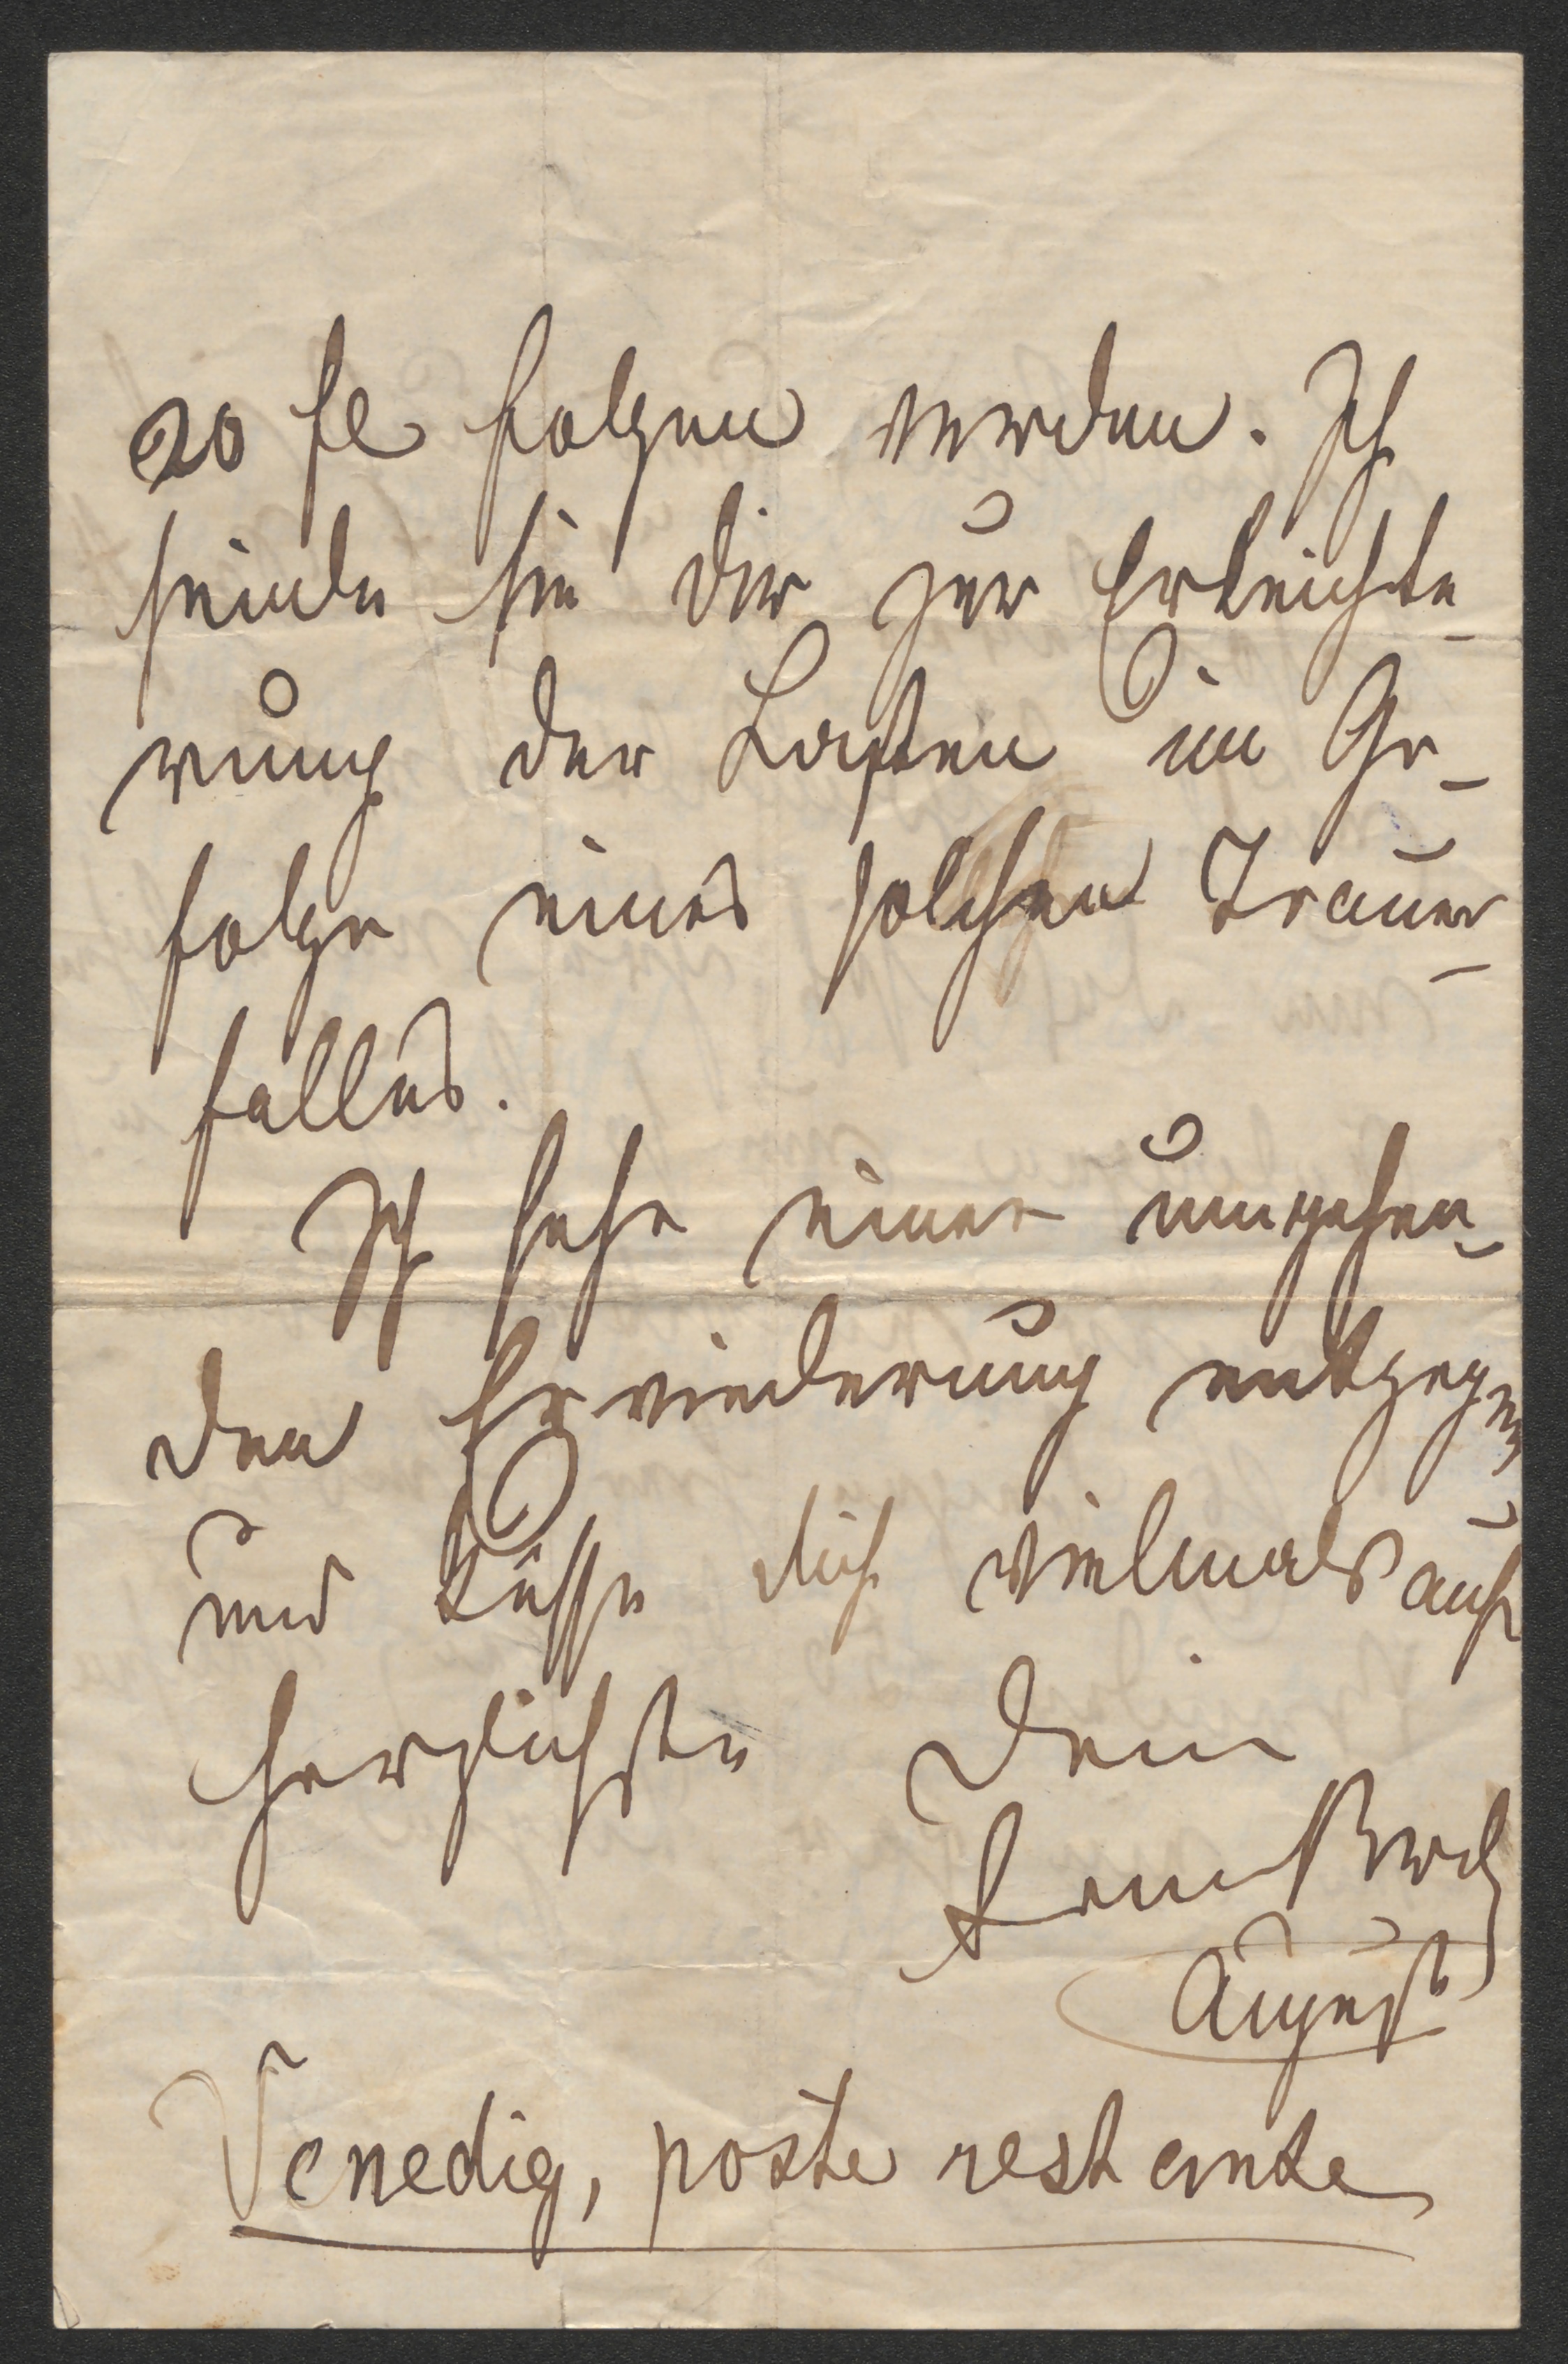 20 fl folgen werden. Ich
sende sie dir zur Erleichte-
rung der Lasten im Ge-
folge eines solchen Trauer-
falles.
Ich sehe einer umgehen-
den Erwiederung entgegen
und küsse dich vielmals aufs
herzlichste Dein
August
Venedig, poste restante